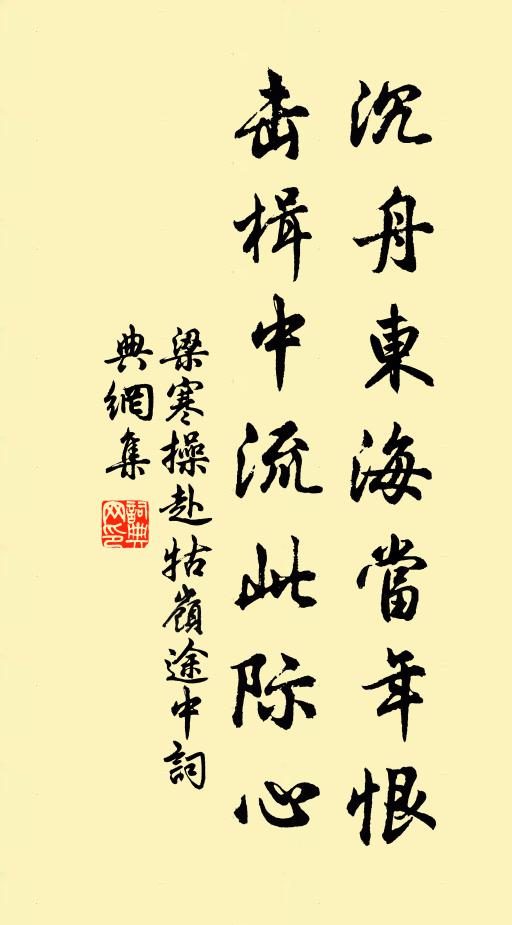 沉舟東海當年恨
击楫中流此际心
梁寒操赴牯嶺途中詞
典網集
詞典网印